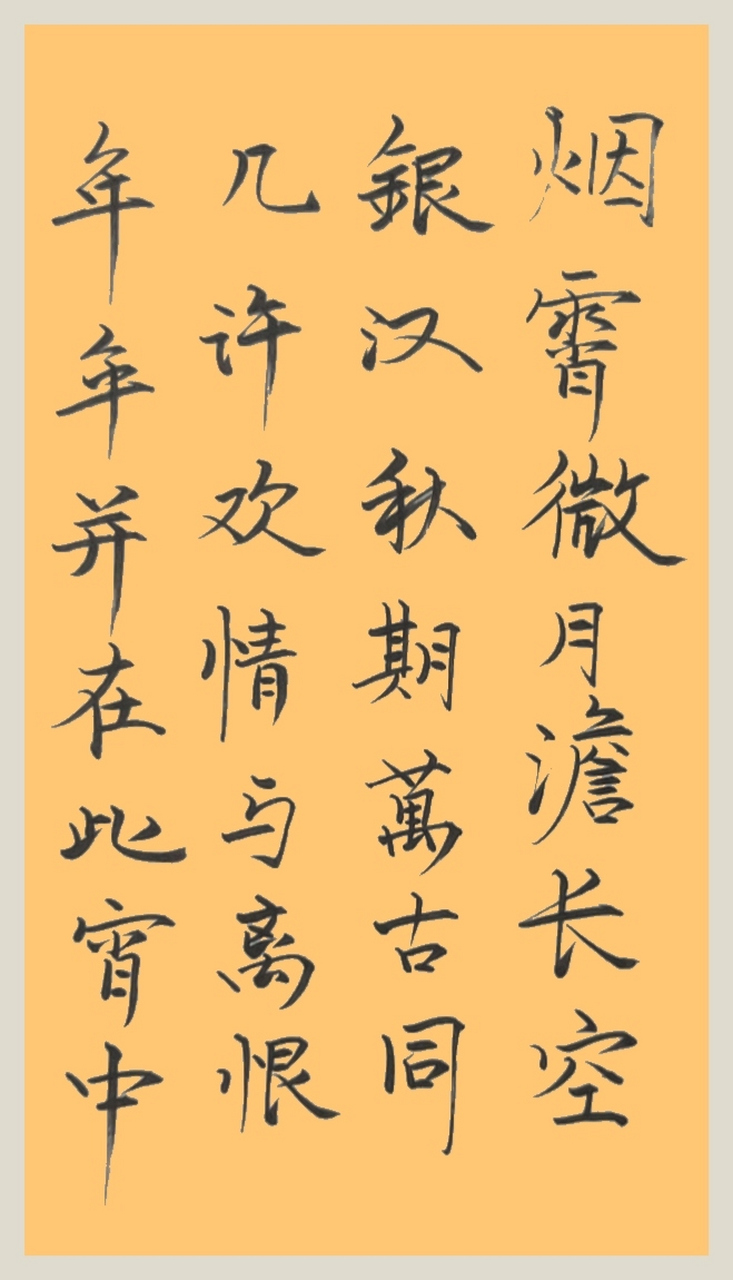 烟霄微月澹长空
銀汉秋期萬古同
几许欢情与离恨
年年并在此宵中